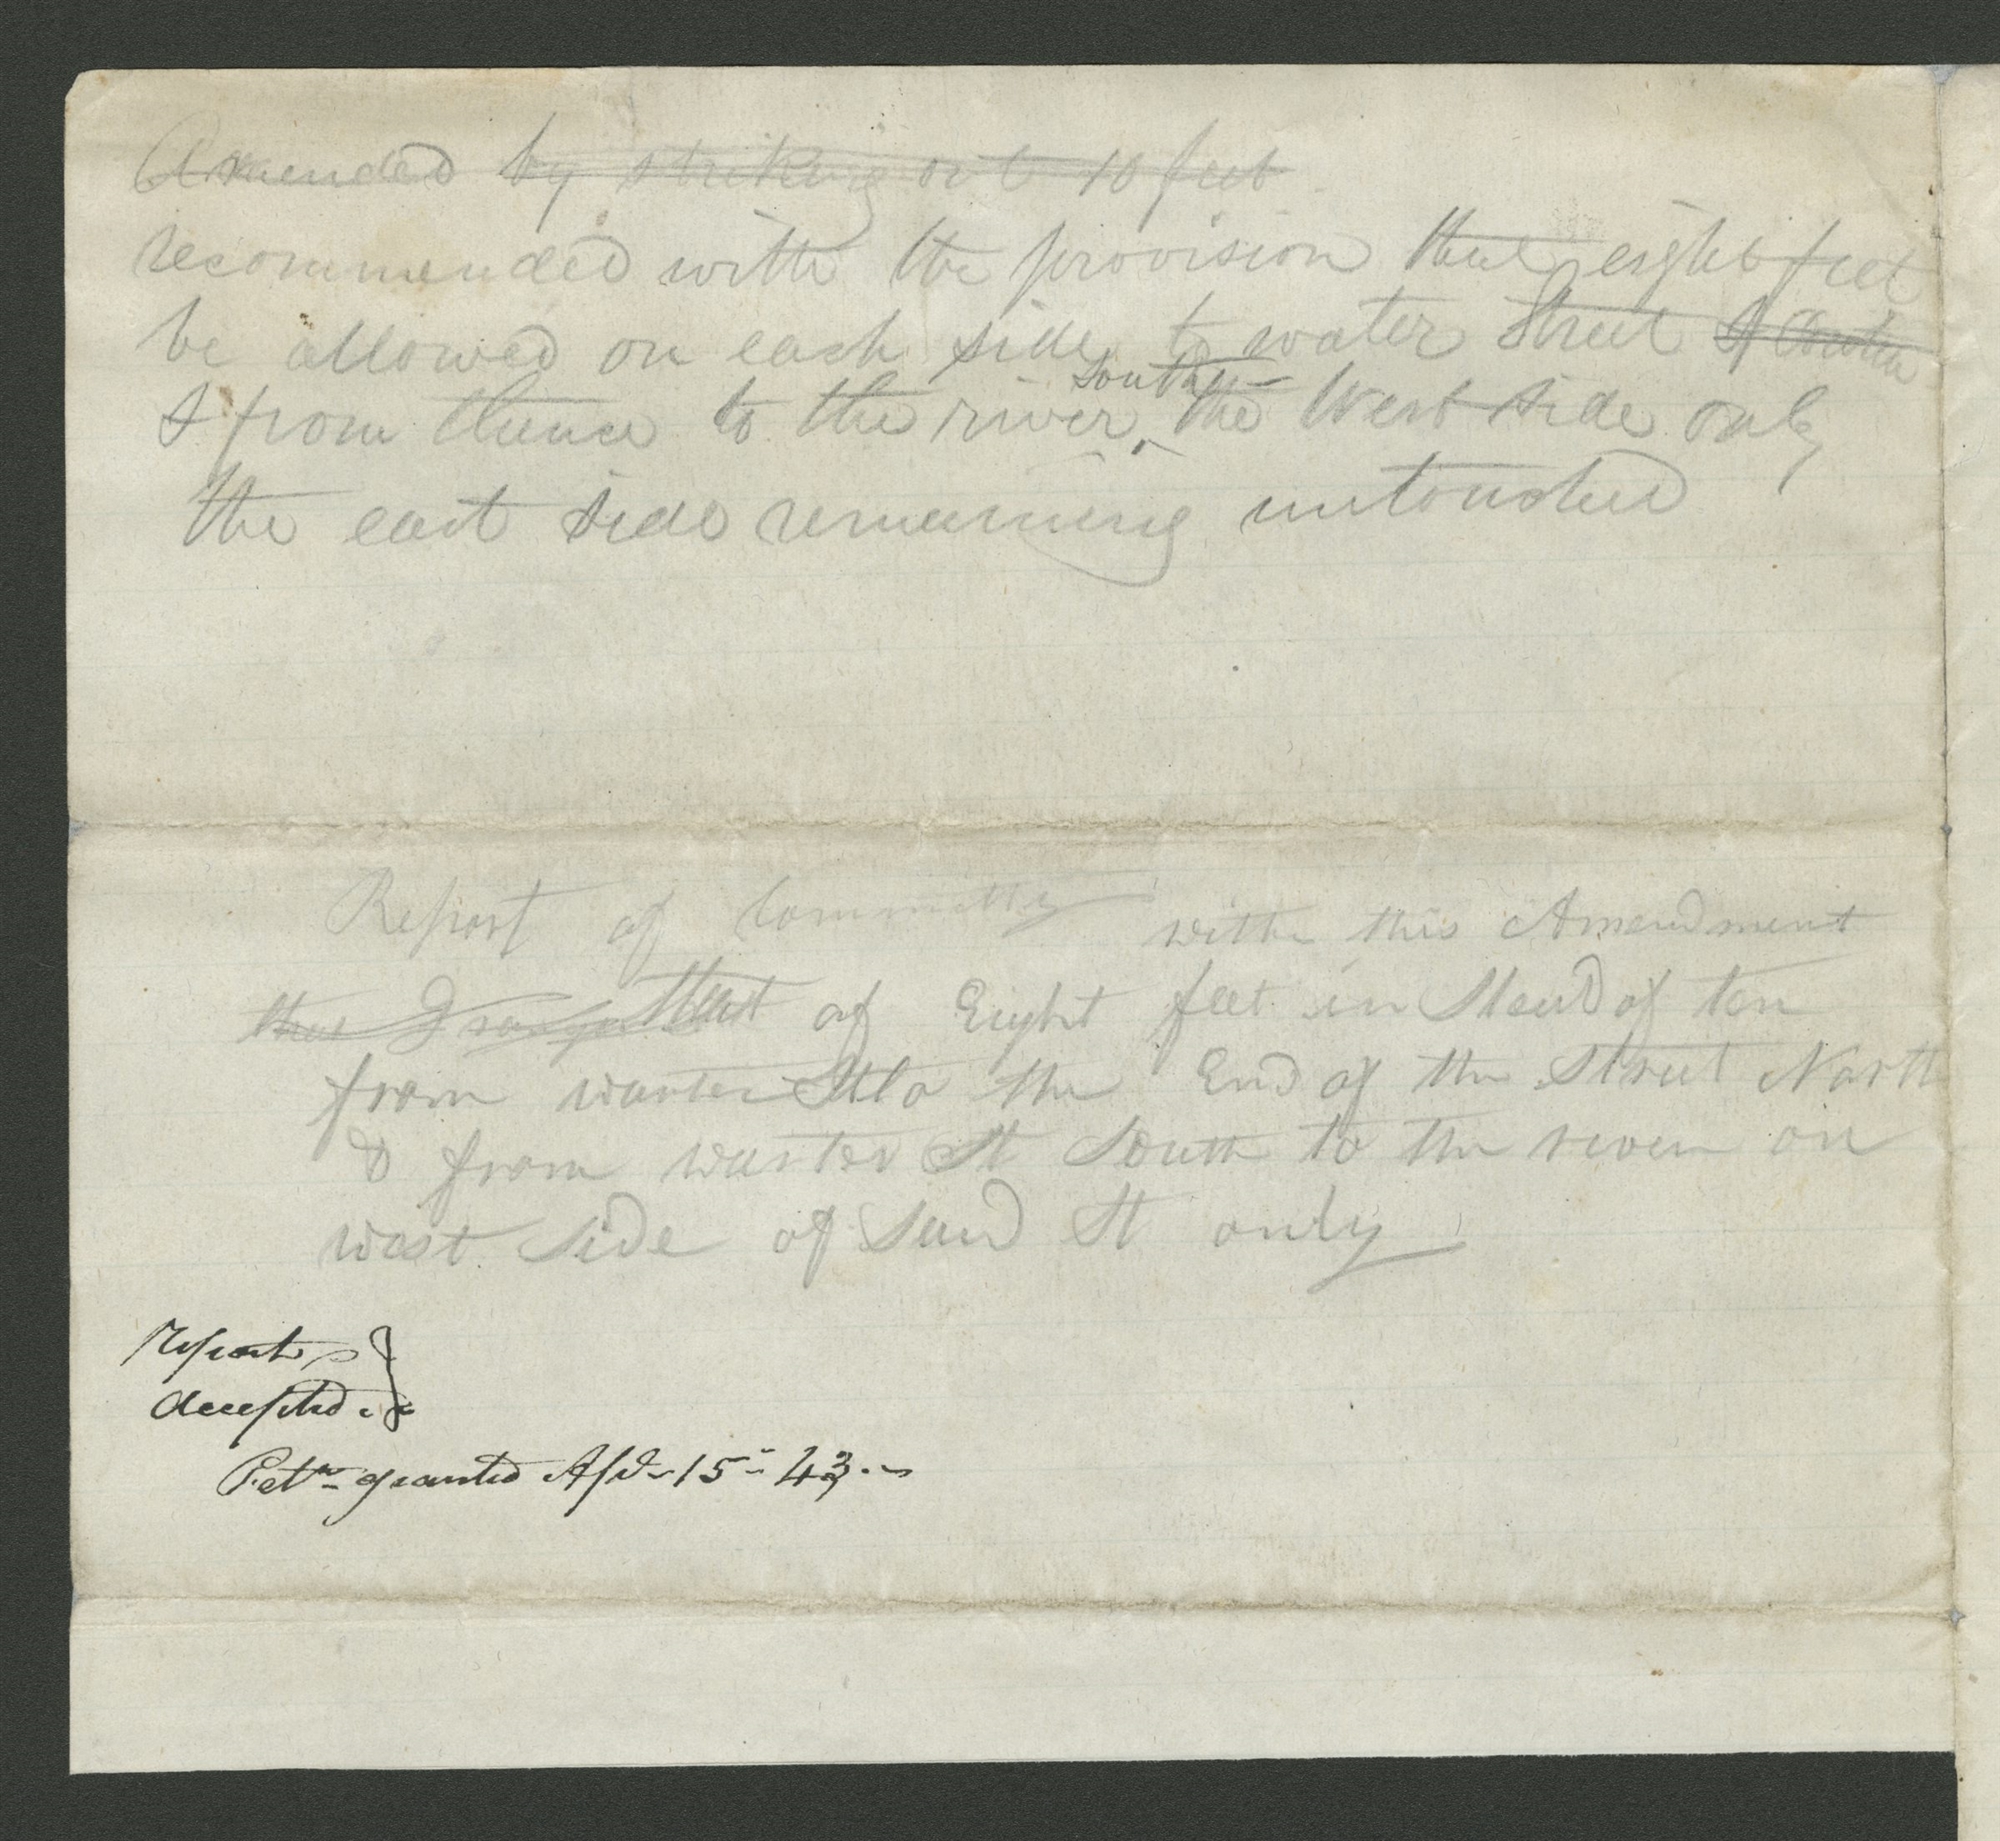 Amended by striking out 10 feet
recommended with the provision that eight feet
be allowed on each side to water Street &
South
& from thence to the river, the West side only
the east side remaining untouched
Report of Committy with this Amendment
that of Eight feet in Stead of ten
from warter St to the End of the Street North
& from warter St South to the river on
west Side of Said St only
report
accepted.
Petn. granted Apl. 15 - 43.